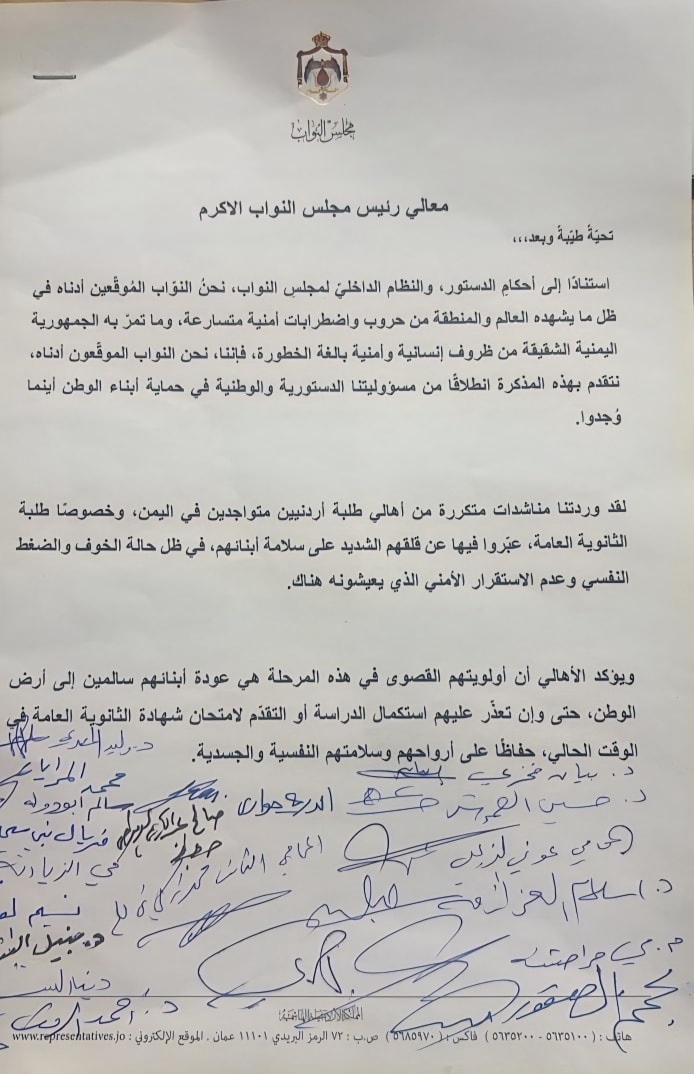 مجلس النواب
معالي رئيس مجلس النواب الاكرم
تحيّةً طيّبةً وبعد،،،
استنادًا إلى أحكامِ الدستور، والنظام الداخليّ لمجلسِ النواب، نحنُ النوّاب المُوقّعين أدناه في
ظل ما يشهده العالم والمنطقة من حروب واضطرابات أمنية متسارعة، وما تمرّ به الجمهورية
اليمنية الشقيقة من ظروف إنسانية وأمنية بالغة الخطورة، فإننا، نحن النواب الموقّعون أدناه،
نتقدم بهذه المذكرة انطلاقًا من مسؤوليتنا الدستورية والوطنية في حماية أبناء الوطن أينما
وُجدوا.
لقد وردتنا مناشدات متكررة من أهالي طلبة أردنيين متواجدين في اليمن، وخصوصًا طلبة
الثانوية العامة، عبّروا فيها عن قلقهم الشديد على سلامة أبنائهم، في ظل حالة الخوف والضغط
النفسي وعدم الاستقرار الأمني الذي يعيشونه هناك.
ويؤكد الأهالي أن أولويتهم القصوى في هذه المرحلة هي عودة أبنائهم سالمين إلى أرض
الوطن، حتى وإن تعذّر عليهم استكمال الدراسة أو التقدّم لامتحان شهادة الثانوية العامة في
الوقت الحالي، حفاظًا على أرواحهم وسلامتهم النفسية والجسدية.
د. بيان فخري
محمد المرايات
د. حسين العموش
سالم ابودولة
المحامي عوني الزعبي
د. اسلام العزازمة
د. احمد
المملكة الأردنية الهاشمية
هاتف : ( ٥٦٣٥١٠٠ - ٥٦٣٥٢٠٠ ) فاكس : ( ٥٦٨٥٩٧٠ ) ص.ب : ٧٢ الرمز البريدي ١١١٠١ عمان . الموقع الإلكتروني : www.representatives.jo